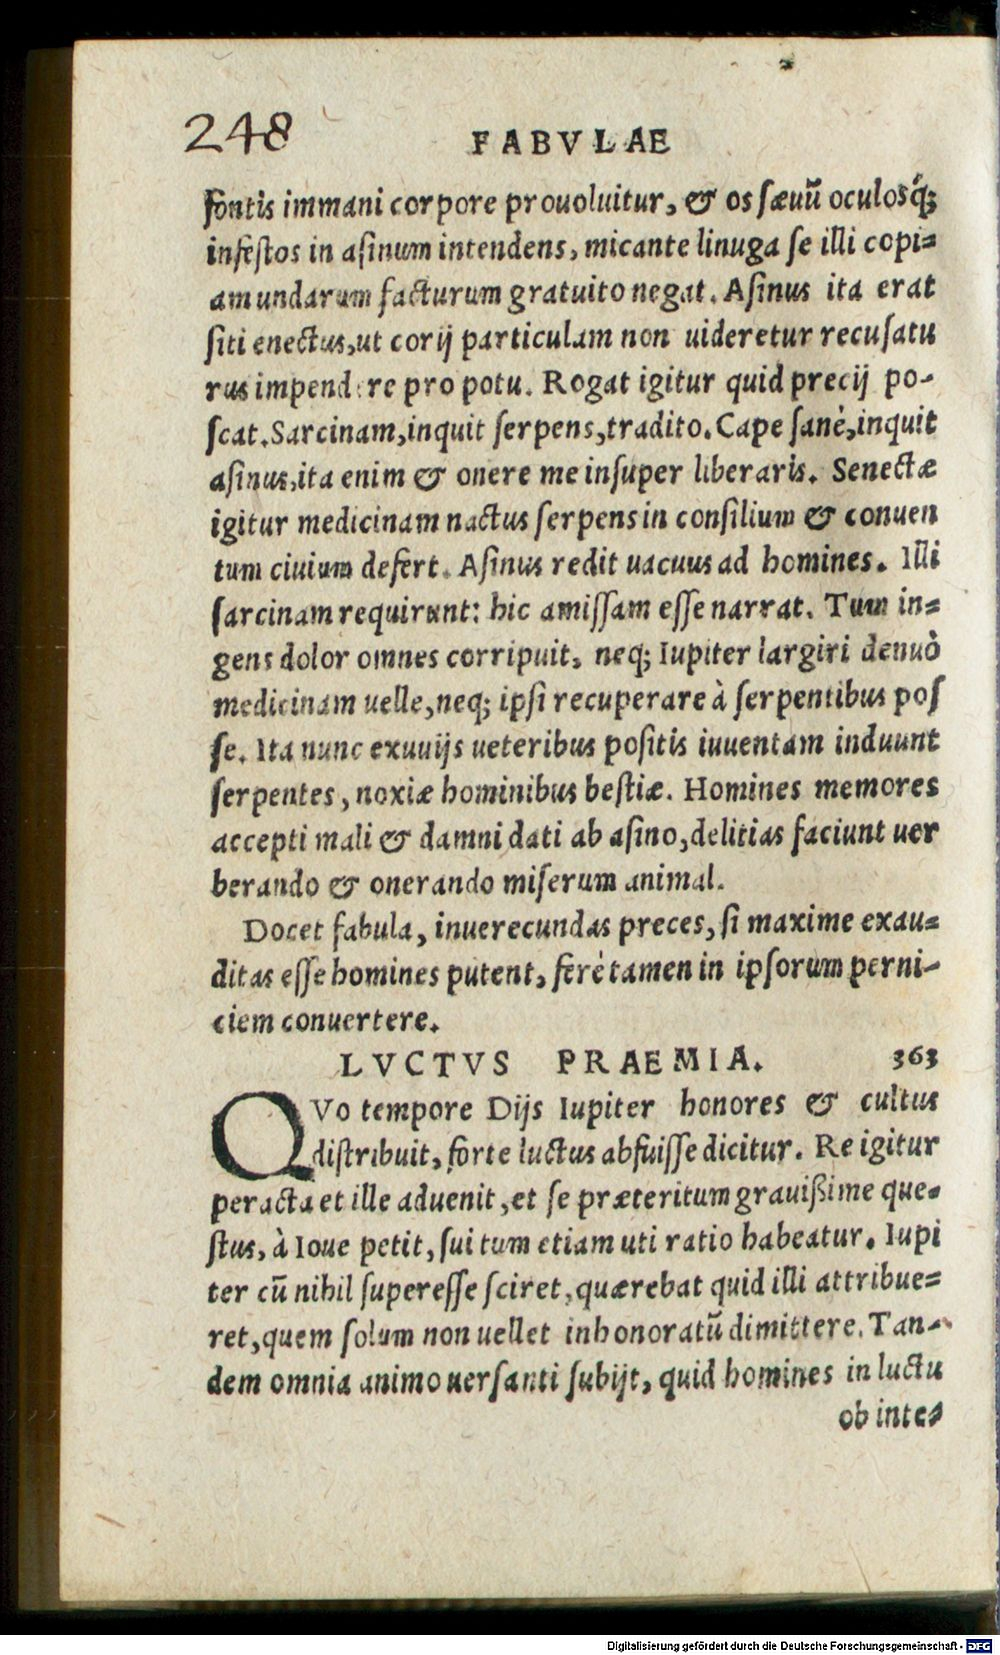 248
FABVLAE
fontis immani corpore prouoluitur, & os sæuũ oculosq́;
infestos in asinum intendens, micante linuga se illi copi=
am undarum facturum gratuito negat. Asinus ita erat
siti enectus, ut corij particulam non uideretur recusatu
rus impendere pro potu. Rogat igitur quid precij po-
scat. Sarcinam, inquit serpens, tradito. Cape sanè, inquit
asinus, ita enim & onere me insuper liberaris. Senectæ
igitur medicinam nactus serpens in consilium & conuen
tum ciuium defert. Asinus redit uacuus ad homines. Illi
sarcinam requirunt: hic amissam esse narrat. Tum in=
gens dolor omnes corripuit, neq; Iupiter largiri denuò
medicinam uelle, neq; ipsi recuperare à serpentibus pos
se. Ita nunc exuuijs ueteribus positis iuuentam induunt
serpentes, noxiæ hominibus bestiæ. Homines memores
accepti mali & damni dati ab asino, delitias faciunt uer
berando & onerando miserum animal.
Docet fabula, inuerecundas preces, si maxime exau=
ditas esse homines putent, ferè tamen in ipsorum perni-
ciem conuertere.
LVCTVS PRAEMIA. 363
QVo tempore Dijs Iupiter honores & cultus
distribuit, forte luctus abfuisse dicitur. Re igitur
peracta et ille aduenit, et se præteritum grauißime que=
stus, à Ioue petit, sui tum etiam uti ratio habeatur. Iupi
ter cũ nihil superesse sciret, quærebat quid illi attribue=
ret, quem solum non uellet inhonoratũ dimittere. Tan-
dem omnia animo uersanti subijt, quid homines in luctu
ob inte=
Digitalisierung gefördert durch die Deutsche Forschungsgemeinschaft - DFG